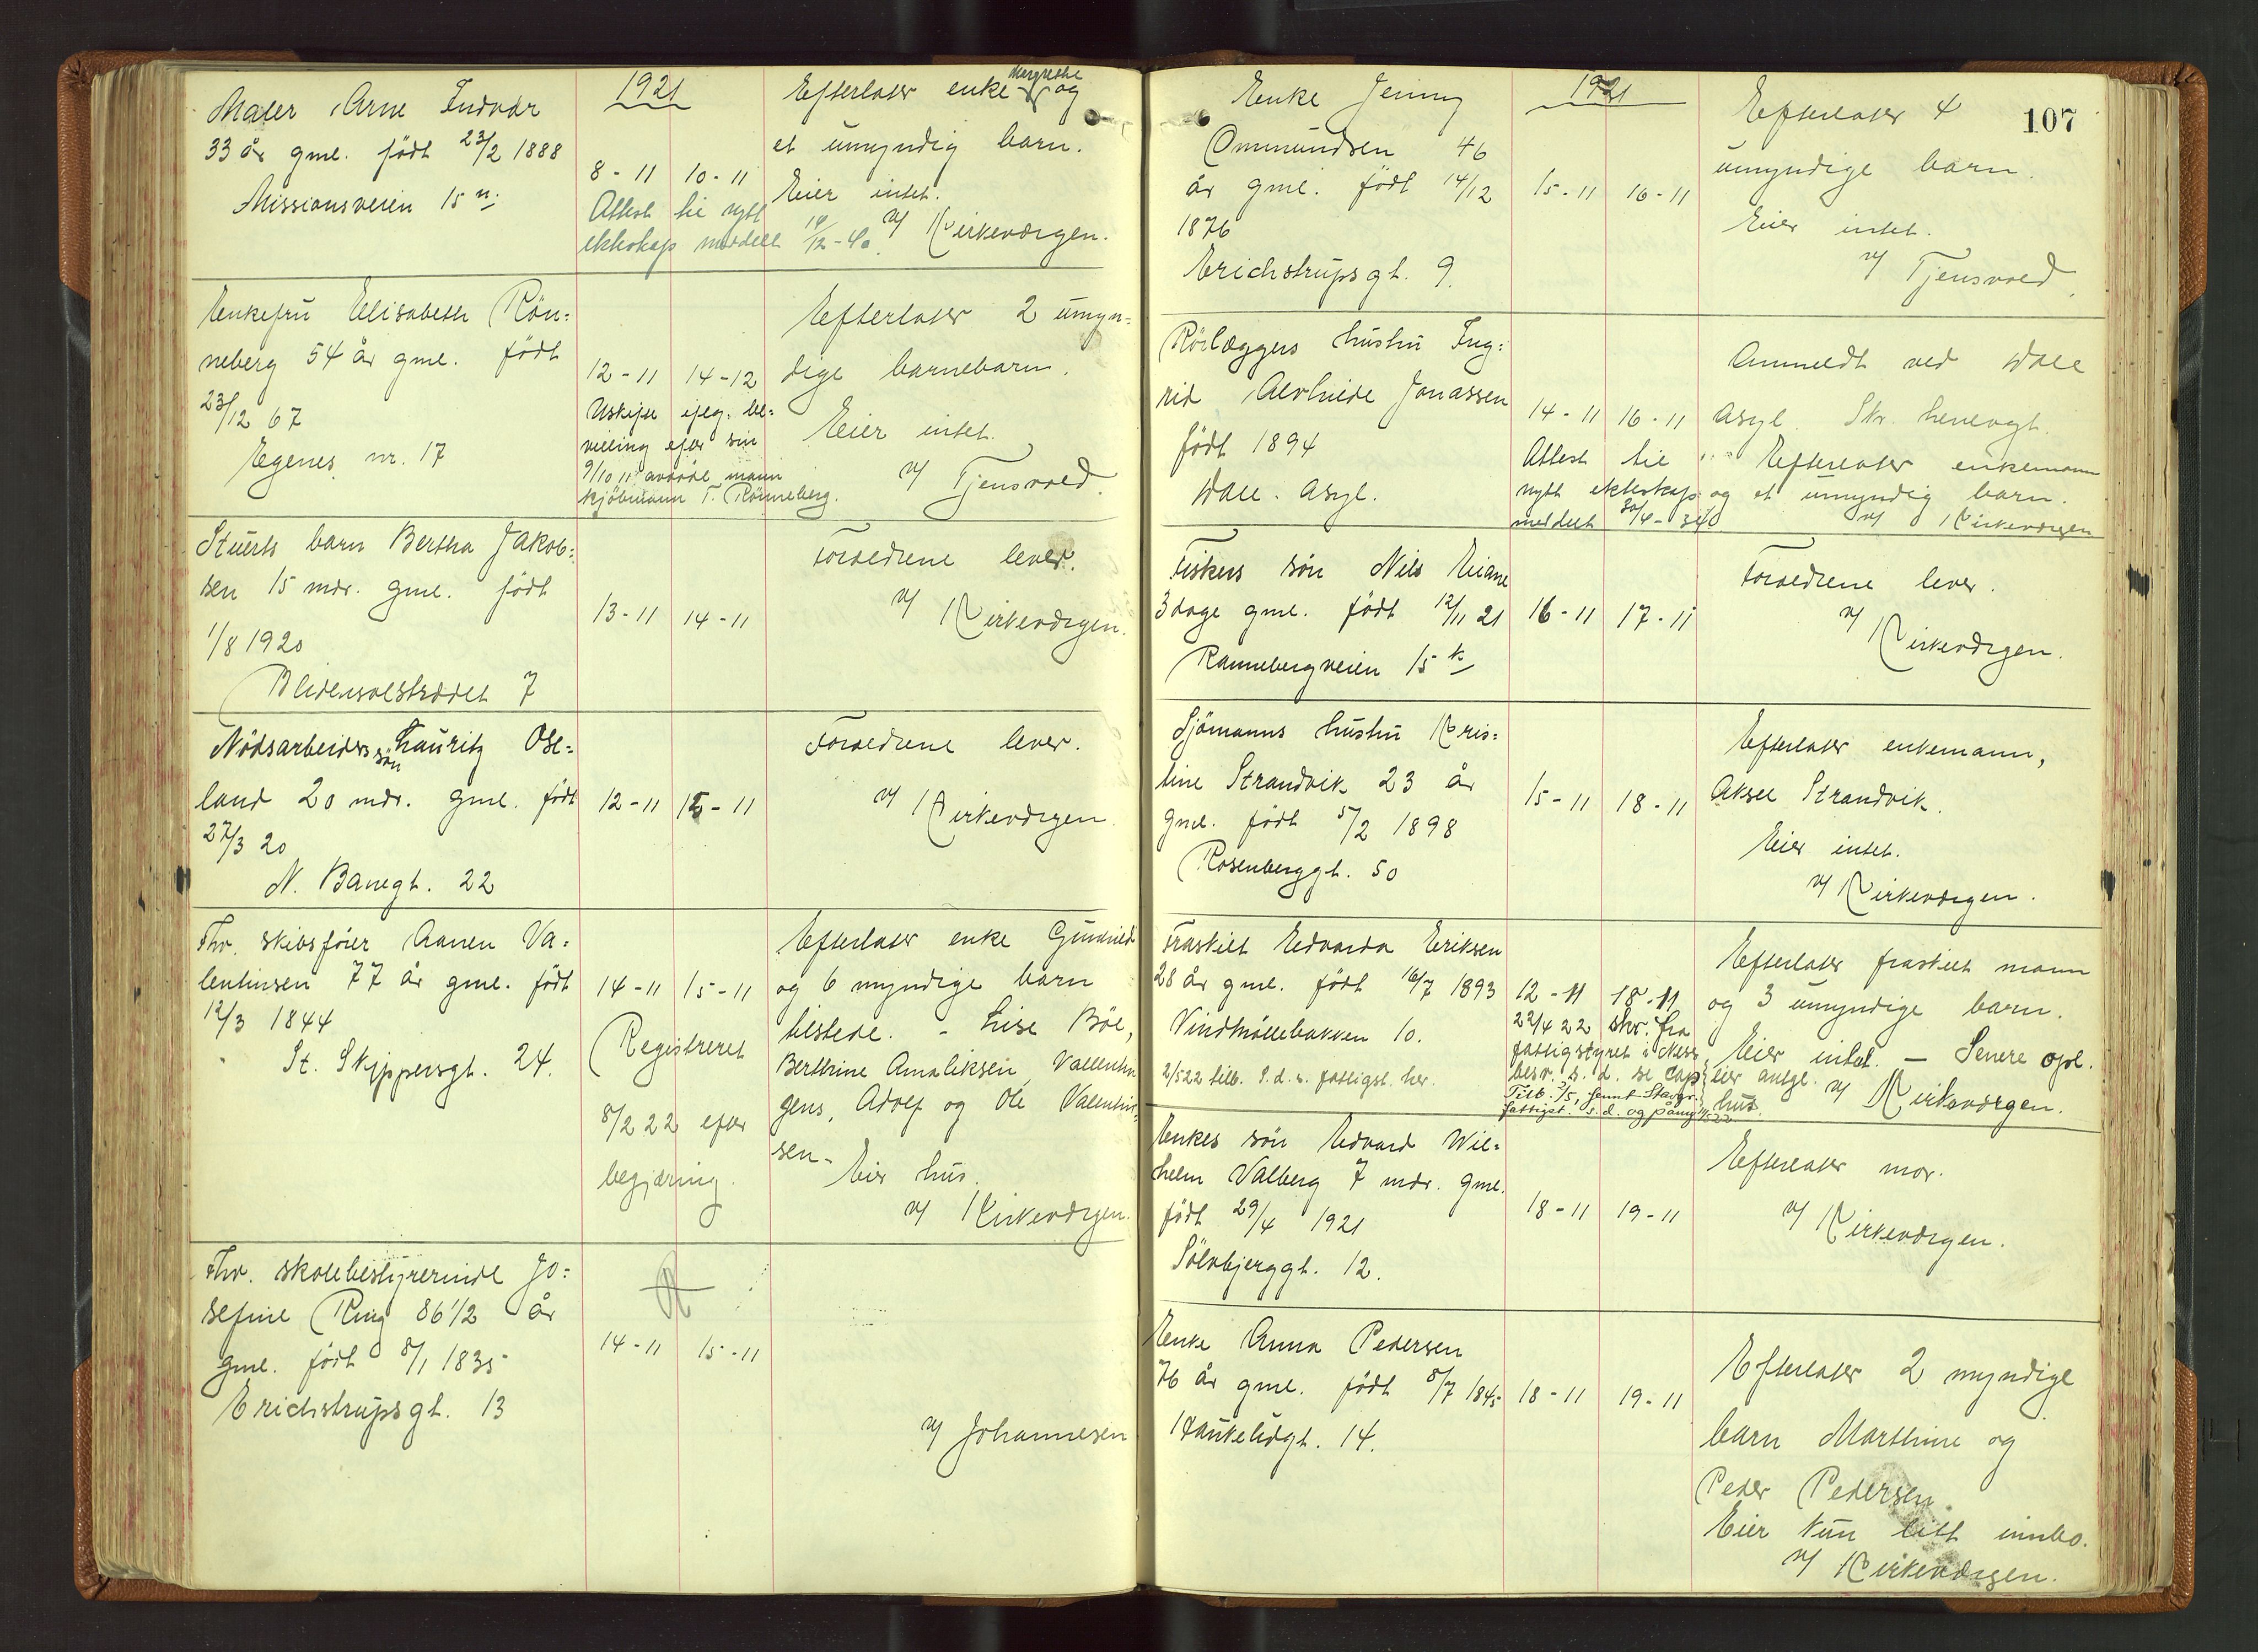 Maler Arne Indvär
33 år gml. födt 23/2 1888
Missionsveien 15 n.
1921
8-11 10-11
Attest til nytt
ekteskap meddelt 14/12-40.
Efterlater enke Margrethe og
et umyndig barn.
Eier intet.
v/ Kirkeværgen.
Enkefru Elisabeth Rön=
neberg 54 år gml. födt
23/12 67
Egenes nr. 17
12-11 14-12
Uskifte ifög. be=
villing efter sin
9/10 11 avdöde mann
kjöbmann T. Rönneberg.
Efterlater 2 umyn=
dige barnebarn.
Eier intet.
v/ Tjensvold.
Stuerts barn Bertha Jakob=
sen 15 mdr. gml. födt
1/8 1920
Blidensolstrædet 7
13-11 14-11
Forældrene lever.
v/ Kirkeværgen.
Nödsarbeiders sön Lauritz Ose=
land 20 mdr. gml. födt
27/3 20
N. Banegt. 22
12-11 15-11
Forældrene lever.
v/ Kirkeværgen.
Fhv. skibsförer Aanen Va=
lentinsen 77 år gml. födt
12/3 1844
St. Skippersgt. 24.
14-11 15-11
Registreret
8/2 22 efter
begjæring.
Efterlater enke Gunhild
og 6 myndige barn
tilstede. - Lise Böe,
Berthine Amaliksen, Vallentin
gens, Adolf og Ole Valentin=
sen-
Eier hus.
v/ Kirkeværgen.
Fhv. skolebestyrerinde Jo=
sefine Ring 86 1/2 år
gml. födt 8/1 1835
Erichstrupsgt. 13
14-11 15-11
v/ Johannesen
107
Enke Jenny
Ommundsen 46
år gml. födt 14/12
1876
Erichstrupsgt. 9.
1921
15-11 16-11
Efterlater 4
umyndige barn.
Eier intet.
v/ Tjensvold.
Rörlæggers hustru Ing=
rid Alvhilde Jonassen
födt 1894
Dale. Asyl.
14-11 16-11
Attest til
nytt ekteskap
meddelt 30/4-34
Anmeldt ved Dale
Asyl. Skr. henlagt.
Efterlater enkemann
og et umyndig barn.
v/ Kirkeværgen
Fiskers sön Nils Eiane
3 dage gml. födt 12/11 21
Rannebergveien 15 k
16-11 17-11
Forældrene lever.
v/ Kirkeværgen.
Sjömanns hustru Kris=
tine Strandvik 23 år
gml. födt 5/2 1898
Rosenberggt. 50
15-11 18-11
Efterlater enkemann,
Aksel Strandvik.
Eier intet.
v/ Kirkeværgen.
Fraskilt Edvarda Eriksen
28 år gml. födt 16/7 1893
Vindmöllebakken 10.
2/5 22 tilb. s.d. s. fattigst. her.
12-11 18-11
22/4 22 skr. fra
fattigstyret i
besv. s. d. se
Tilb. 2/5, sendt Stavgr.
fattigst. s.d. og
Efterlater fraskilt mann
og 3 umyndige barn.
Eier intet. - Senere opl.
eier antgl.
hus.
v/ Kirkeværgen.
Enkes sön Edvard Wil=
helm Valberg 7 mdr. gml.
födt 29/4 1921
Sölvbjerggt. 12.
18-11 19-11
Efterlater mor.
v/ Kirkeværgen.
Enke Anna Pedersen
76 år gml. födt 8/7 1845
Haukeligt. 14.
18-11 19-11
Efterlater 2 myndige
barn Marthine og
Peder Pedersen.
Eier kun litt innbo.
v/ Kirkeværgen.